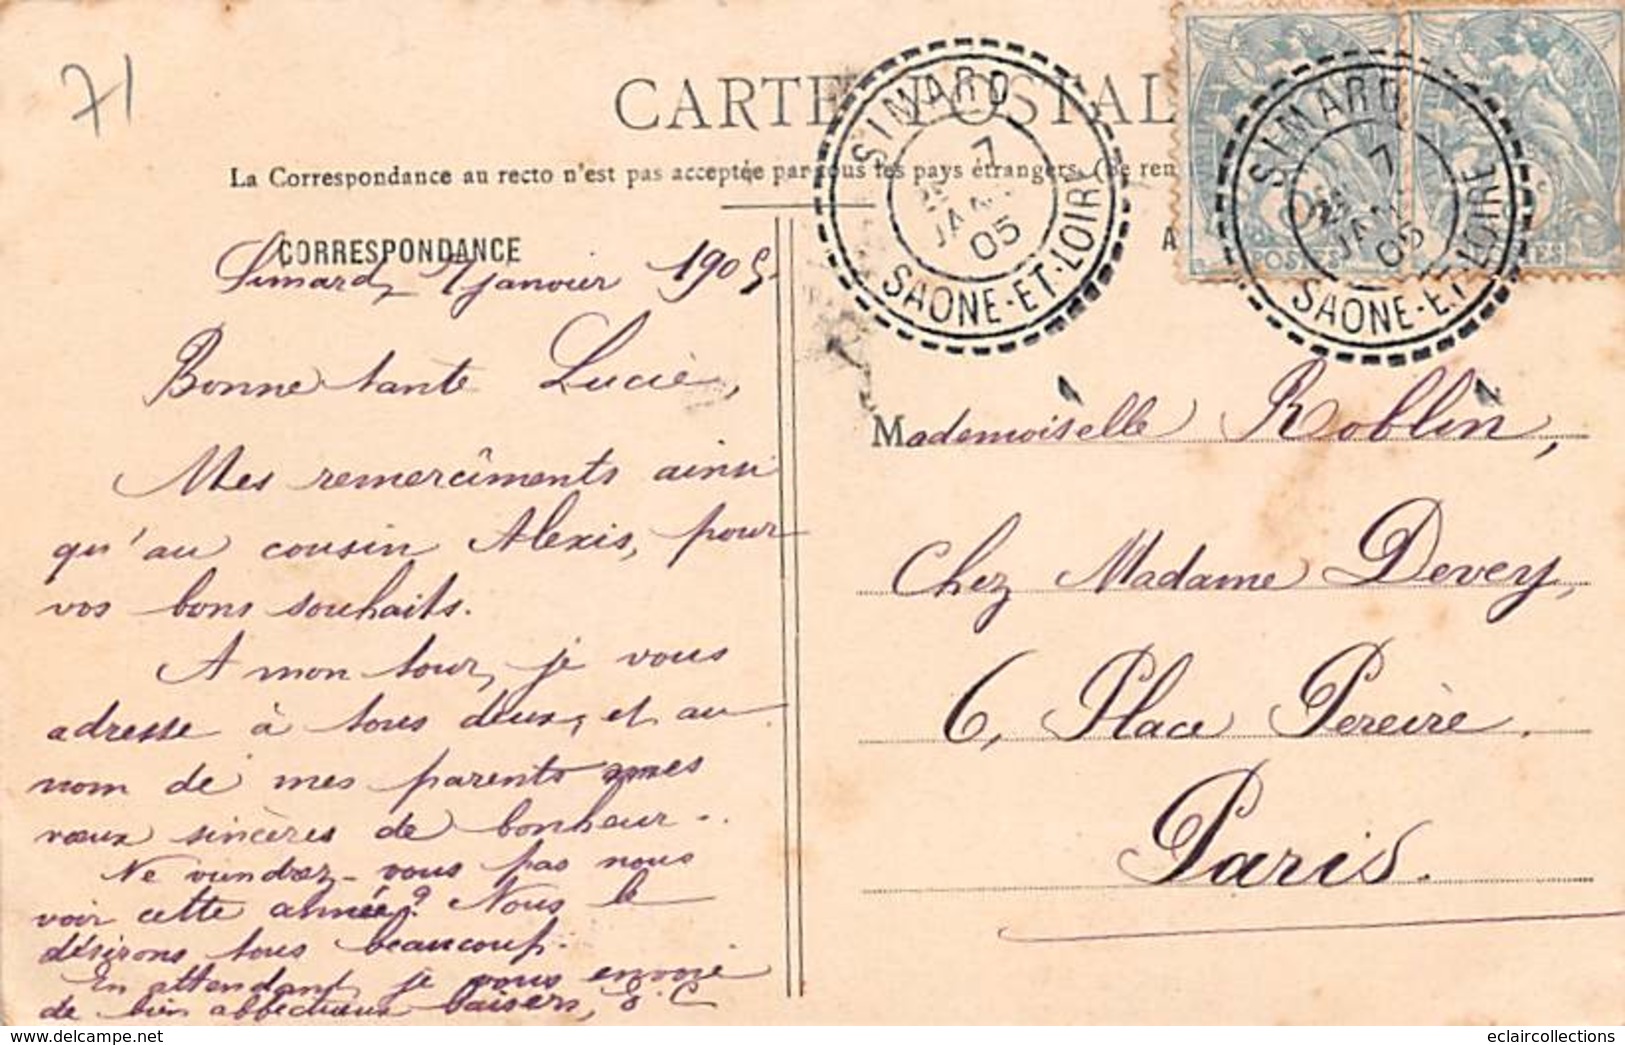 71
CARTE POSTAL
La Correspondance au recto n'est pas acceptée par tous les pays étrangers. (Se ren
CORRESPONDANCE
SIMARD
7
JANV
05
SAONE-ET-LOIRE
SIMARD
7
JANV
05
SAONE-ET-LOIRE
POSTES
Simard, 7 janvier 1905.
Bonne tante Lucie,
Mes remercîments ainsi
qu'au cousin Alexis, pour
vos bons souhaits.
A mon tour, je vous
adresse à tous deux, et au
nom de mes parents mes
vœux sincères de bonheur.
Ne viendrez-vous pas nous
voir cette année? Nous le
désirons tous beaucoup.
En attendant, je vous envoie
de bien affectueux baisers, E. C
Mademoiselle Roblin,
Chez Madame Devey,
6, Place Pereire.
Paris.
www.delcampe.net
eclaircollections